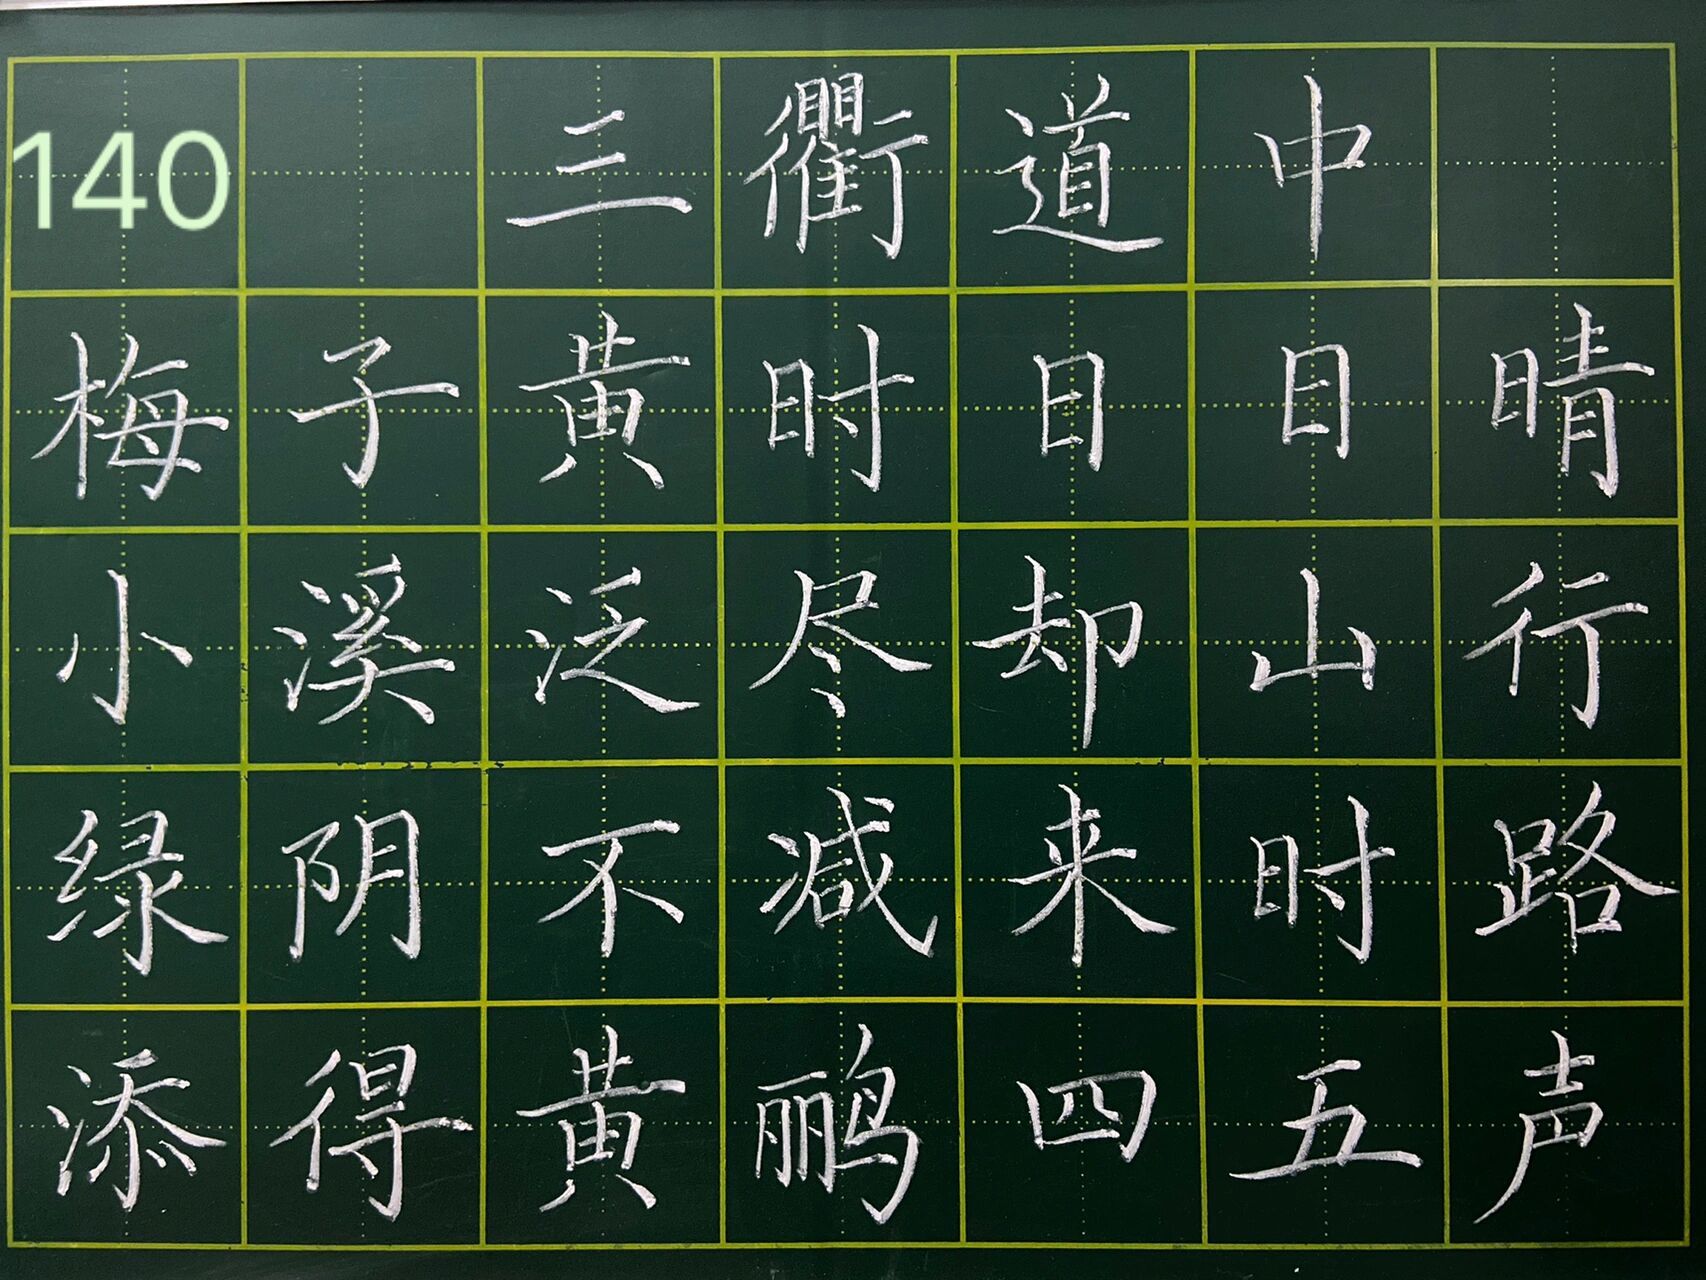 140 三衢道中
梅子黄时日日晴
小溪泛尽却山行
绿阴不减来时路
添得黄鹂四五声